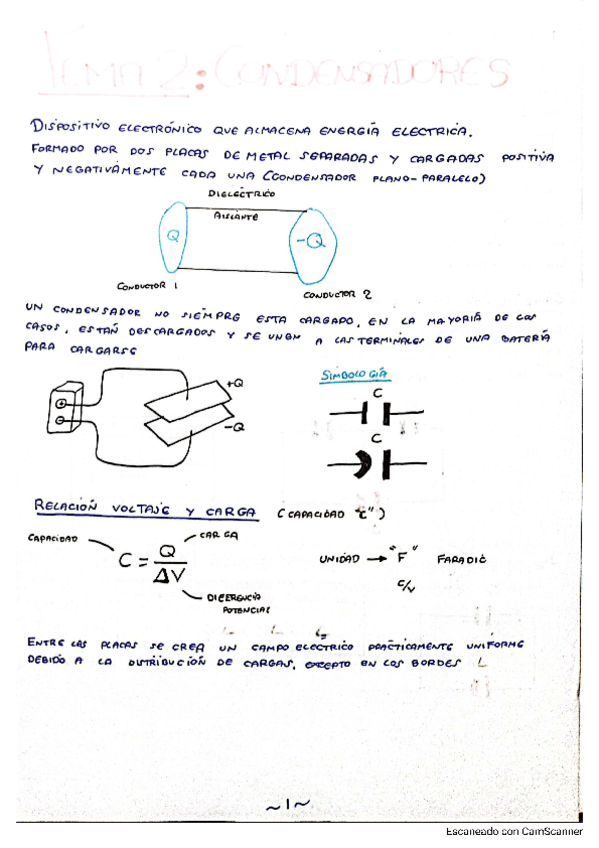 TEMA 2: CONDENSADORES
DISPOSITIVO ELECTRÓNICO QUE ALMACENA ENERGÍA ELECTRICA.
FORMADO POR DOS PLACAS DE METAL SEPARADAS Y CARGADAS POSITIVA
Y NEGATIVAMENTE CADA UNA (CONDENSADOR PLANO-PARALELO)
DIELÉCTRICO
AISLANTE
Q
-Q
CONDUCTOR 1
CONDUCTOR 2
UN CONDENSADOR NO SIEMPRE ESTA CARGADO, EN LA MAYORÍA DE LOS
CASOS, ESTÁN DESCARGADOS Y SE UNEN A LAS TERMINALES DE UNA BATERÍA
PARA CARGARSE
+Q
-Q
SIMBOLOGÍA
C
C
RELACIÓN VOLTAJE Y CARGA (CAPACIDAD "C")
CAPACIDAD
CARGA
C = Q / ΔV
DIFERENCIA
POTENCIAL
UNIDAD → "F" FARADIO
C/V
ENTRE LAS PLACAS SE CREA UN CAMPO ELECTRICO PRÁCTICAMENTE UNIFORME
DEBIDO A LA DISTRIBUCIÓN DE CARGAS, EXCEPTO EN LOS BORDES
~1~
Escaneado con CamScanner